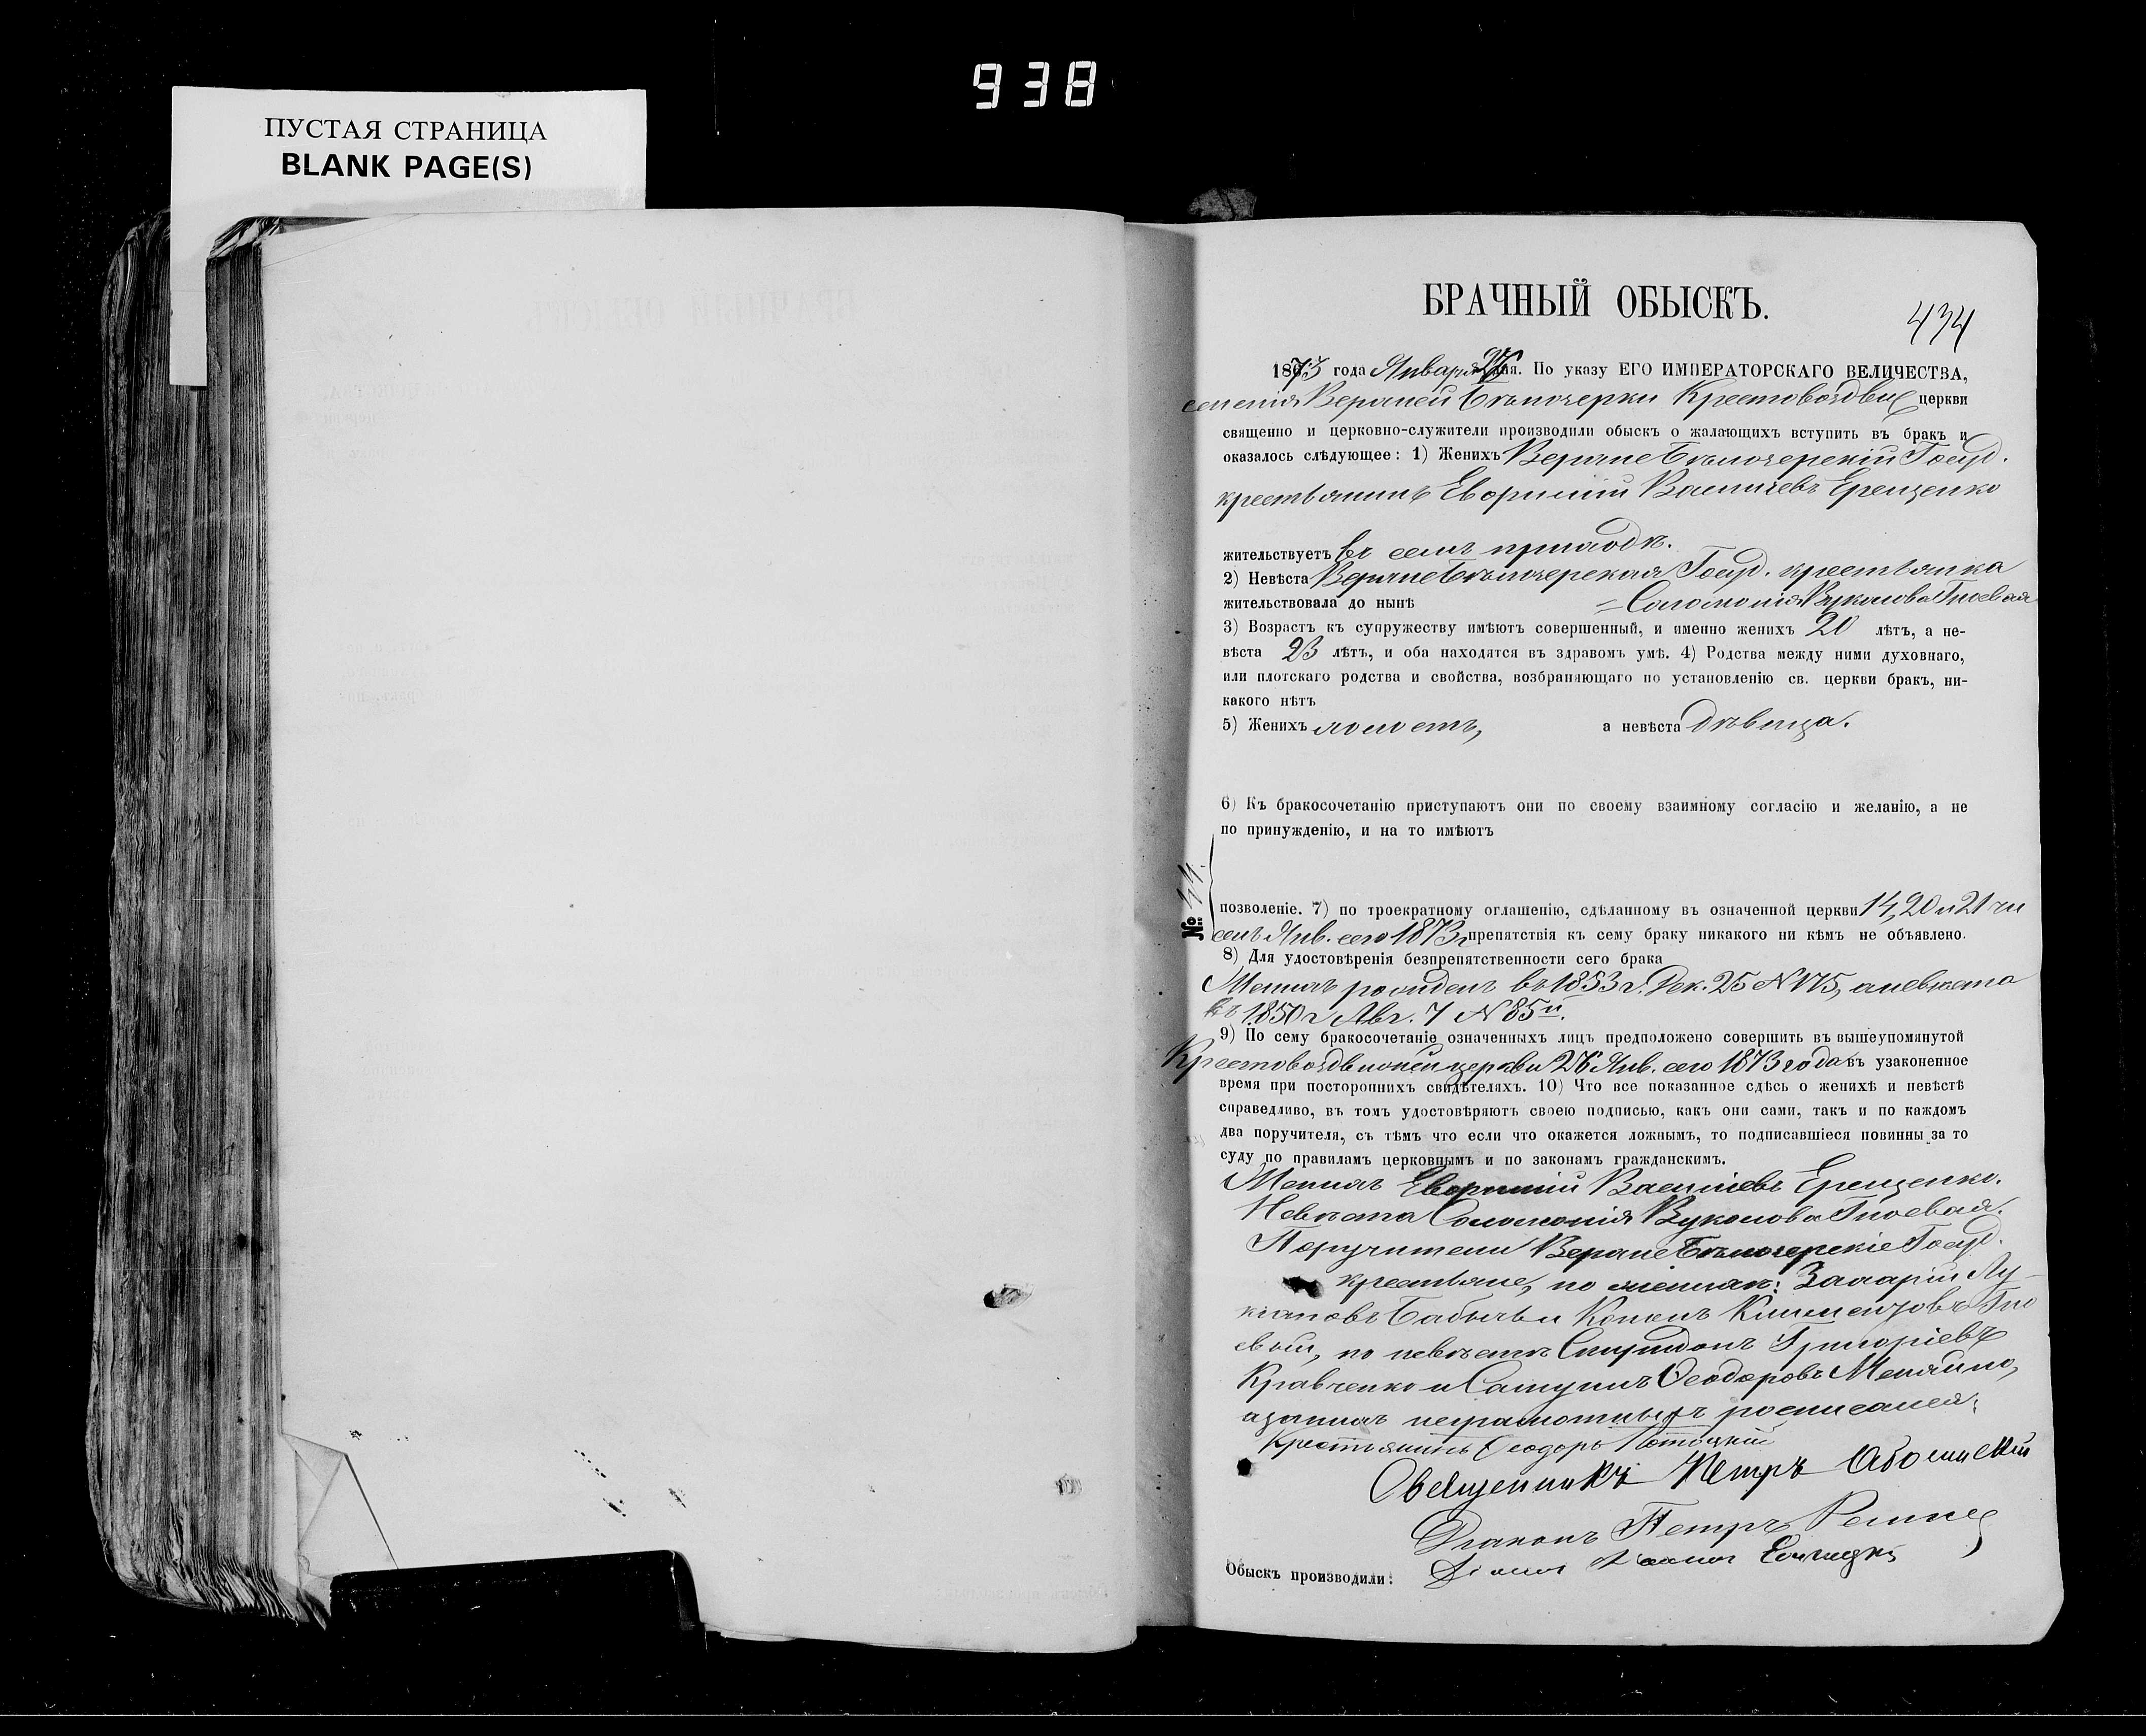 938
ПУСТАЯ СТРАНИЦА
BLANK PAGE(S)
БРАЧНЫЙ ОБЫСКЪ.
434
1873 года Января 26 дня. По указу ЕГО ИМПЕРАТОРСКАГО ВЕЛИЧЕСТВА,
селенія Верхней Бѣлозерки Крестовоздвиж церкви
священно и церковно-служители производили обыскъ о жалающихъ вступить въ бракъ и
оказалось слѣдующее: 1) Женихъ Верхнебѣлозерскій Госуд.
крестьянинъ Евфимій Васильевъ Ерещенко
жительствуетъ въ семъ приходѣ.
2) Невѣста Верхнебѣлозерская Госуд. крестьянка
жительствовала до нынѣ = Соломонія Вуколова Гноевая
3) Возрастъ къ супружеству имѣютъ совершенный, и именно женихъ 20 лѣтъ, а не-
вѣста 23 лѣтъ, и оба находятся въ здравомъ умѣ. 4) Родства между ними духовнаго,
или плотскаго родства и свойства, возбраняющаго по установленію св. церкви бракъ, ни-
какого нѣтъ
5) Женихъ холостъ, а невѣста дѣвица.
6) Къ бракосочетанію приступаютъ они по своему взаимному согласію и желанію, а не
по принужденію, и на то имѣютъ
№ 11.
позволеніе. 7) по троекратному оглашенію, сдѣланному въ означенной церкви 14, 20 и 21 чи
селъ Янв. сего 1873 г. препятствія къ сему браку никакого ни кѣмъ не объявлено.
8) Для удостовѣренія безпрепятственности сего брака
Женихъ рожденъ въ 1853 г. Дек. 25 N 175, а невѣста
въ 1850 г Авг. 7 N 85й.
9) По сему бракосочетаніе означенныхъ лицъ предположено совершить въ вышеупомянутой
Крестовоздвижен церкви 26 Янв. сего 1873 года въ узаконенное
время при постороннихъ свидѣтеляхъ. 10) Что все показанное сдѣсь о женихѣ и невѣстѣ
справедливо, въ томъ удостовѣряютъ своею подписью, какъ они сами, такъ и по каждомъ
два поручителя, съ тѣмъ что если что окажется ложнымъ, то подписавшіеся повинны за то
суду по правиламъ церковнымъ и по законамъ гражданскимъ.
Женихъ Евфимій Васильевъ Ерещенко.
Невѣста Соломонія Вуколова Гноевая.
Поручители Верхнебѣлозерскіе Госуд.
крестьяне, по женихѣ: Захарій Лу-
кіановъ Бабычъ и Кононъ Климентовъ Гно
евый, по невѣстѣ Спиридонъ Григоріевъ
Кравченко и Самуилъ Ѳеодоровъ Меняйло,
а за нихъ неграмотныхъ росписался:
Крестьянинъ Ѳеодоръ
Священникъ Петръ
Діаконъ Петръ
Обыскъ производили: